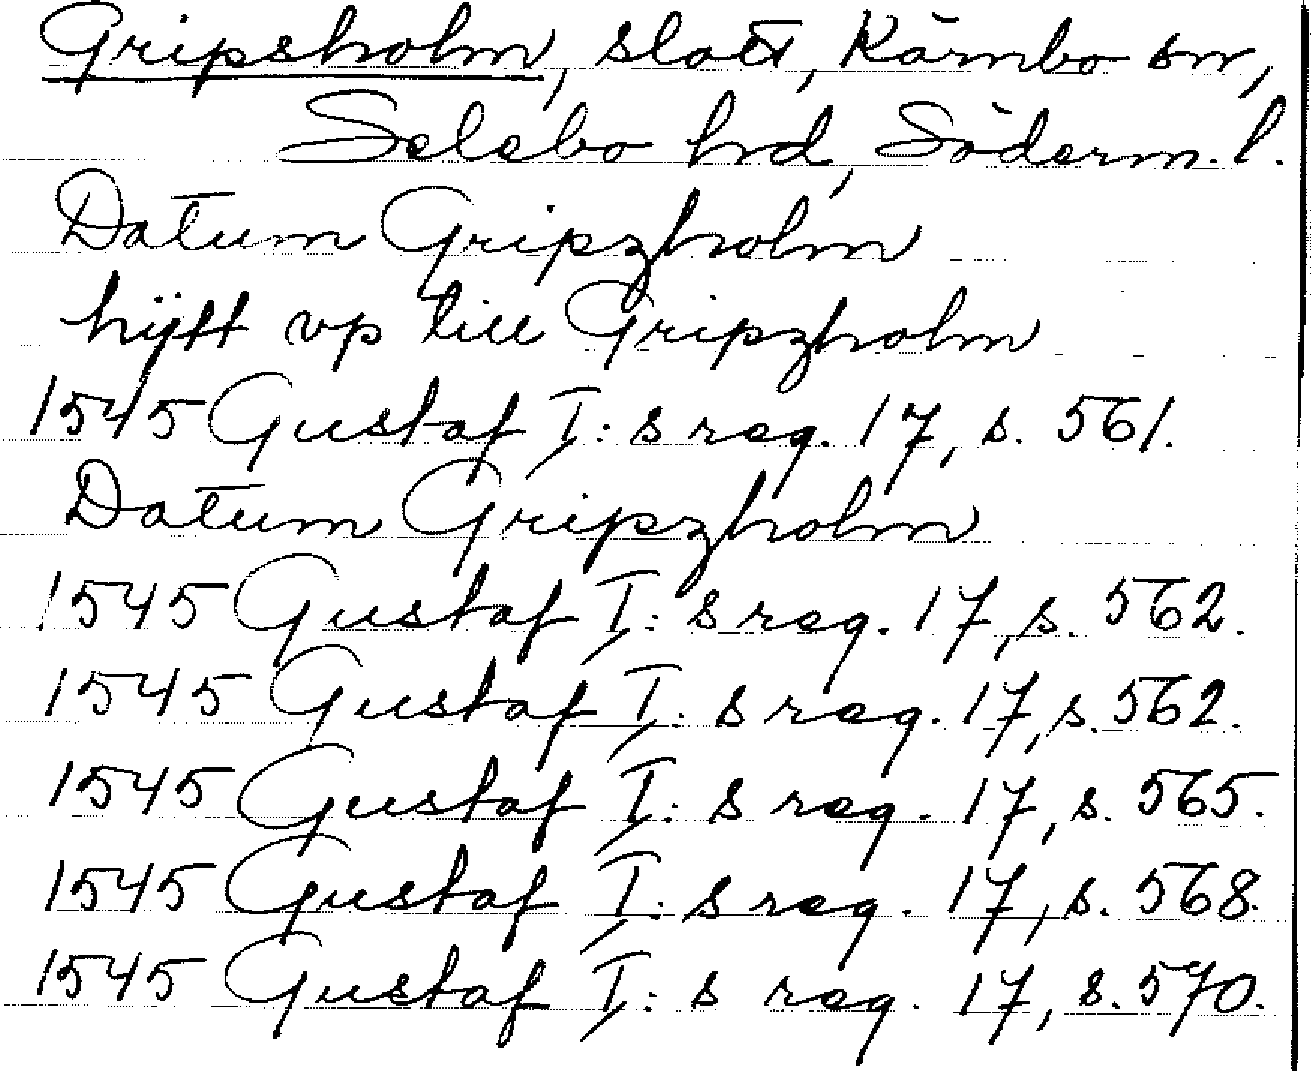 Gripsholm, slott, Kärnbo sn,
Selebo hrd, Söderm. l.
Datum Gripzholm
hijtt vp till Gripzholm
1545 Gustaf I: s reg. 17, s. 561.
Datum Gripzholm
1545 Gustaf I: s reg. 17, s. 562.
1545 Gustaf I: s reg. 17, s. 562.
1545 Gustaf I: s reg. 17, s. 565.
1545 Gustaf I: s reg. 17, s. 568.
1545 Gustaf I: s reg. 17, s. 570.